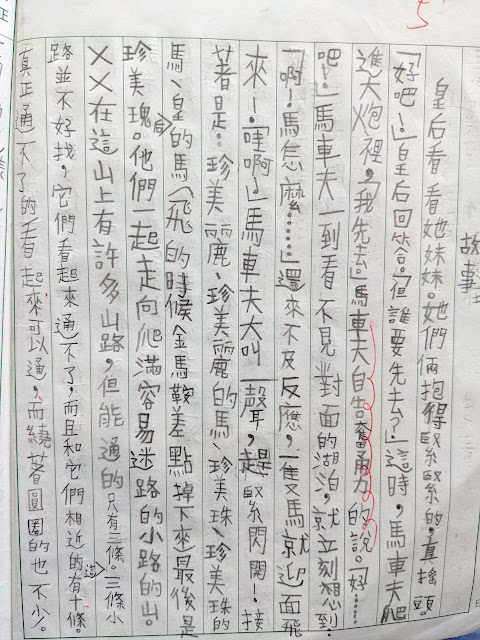 5
故事
皇后看看她妹妹。她們倆抱得緊緊的,直搖頭。
「好吧!」皇后回答。「但誰要先去?」這時,馬車夫爬
進大炮裡,「我先去」馬車夫自告奮勇的說。「好……
吧!」馬車夫一到看不見對面的湖泊,就立刻想到:
「啊!馬怎麼……」還來不及反應,一隻馬就迎面飛
來!「哇啊!」馬車夫大叫一聲,趕緊閃開。接
著是:珍美麗、珍美麗的馬、珍美珠、珍美珠的
馬、皇后的馬(飛的時候金馬鞍差點掉下來)最後是
珍美瑰。他們一起走向爬滿容易迷路的小路的山。
××在這山上有許多山路,但能通的只有三條。三條小
路並不好找,它們看起來通不了,而且和它們相近的有十條。
真正通不了的看起來可以通,而繞著圓圈的也不少。